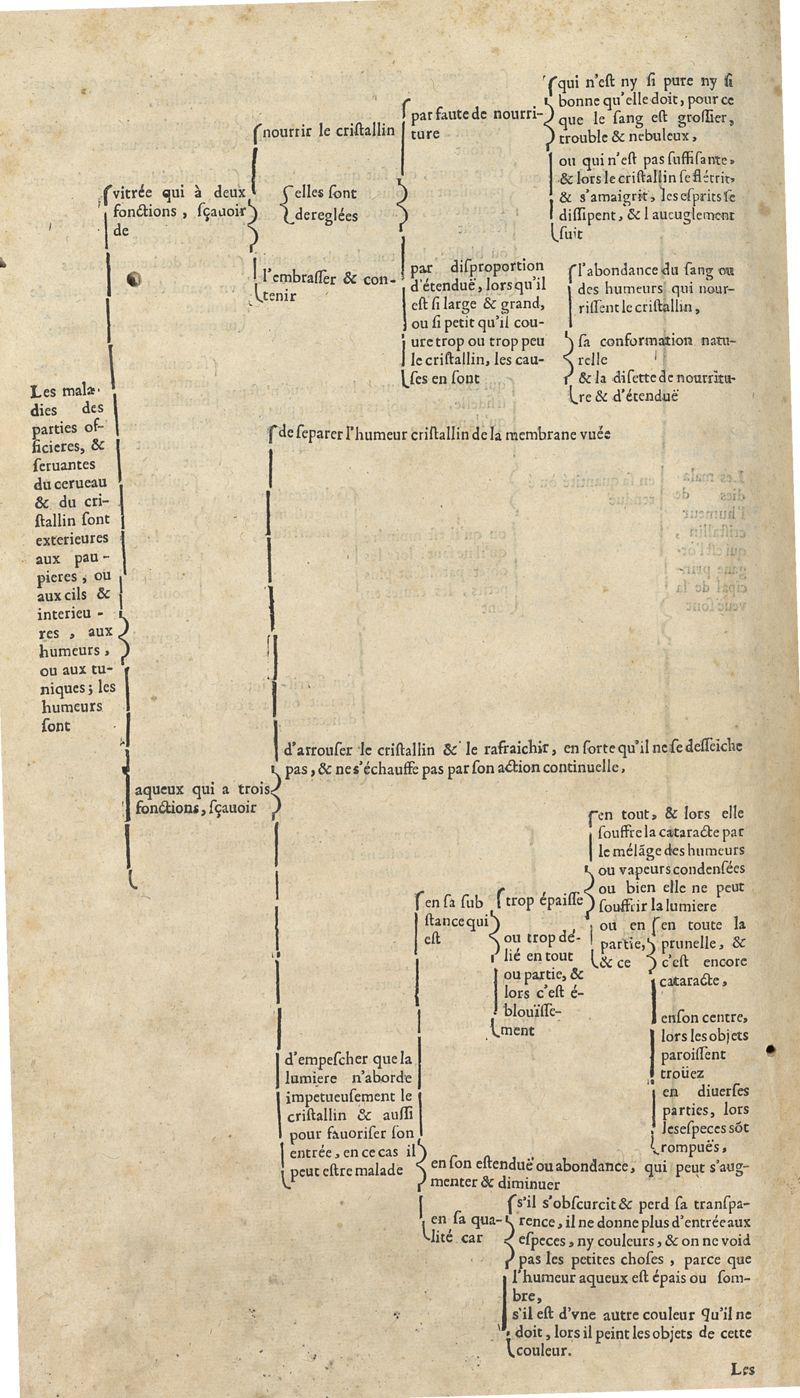 Les mala-
dies des
parties of-
ficieres, &
ſeruantes
du cerueau
& du cri-
ſtallin ſont
exterieures
aux pau-
pieres, ou
aux cils &
interieu-
res, aux
humeurs,
ou aux tu-
niques; les
humeurs
ſont
vitrée qui à deux
fonctions, ſçauoir
de
nourrir le criſtallin
elles ſont
dereglées
l'embraſſer & con-
tenir
par faute de nourri-
ture
qui n'eſt ny ſi pure ny ſi
bonne qu'elle doit, pour ce
que le ſang eſt groſſier,
trouble & nebuleux,
ou qui n'eſt pas ſuffiſante,
& lors le criſtallin ſe flétrit,
& s'amaigrit, les eſprits ſe
diſſipent, & l'aueuglement
ſuit
par diſproportion
d'étenduë, lors qu'il
eſt ſi large & grand,
ou ſi petit qu'il cou-
ure trop ou trop peu
le criſtallin, les cau-
ſes en ſont
l'abondance du ſang ou
des humeurs qui nour-
riſſent le criſtallin,
ſa conformation natu-
relle
& la diſette de nourritu-
re & d'étenduë
aqueux qui a trois
fonctions, ſçauoir
de ſeparer l'humeur criſtallin de la membrane vuée
d'arrouſer le criſtallin & le rafraichir, en ſorte qu'il ne ſe deſſeiche
pas, & ne s'échauffe pas par ſon action continuelle,
d'empeſcher que la
lumiere n'aborde
impetueuſement le
criſtallin & auſſi
pour fauoriſer ſon
entrée, en ce cas il
peut eſtre malade
en ſa ſub
ſtance qui
eſt
trop épaiſſe
en tout, & lors elle
ſouffre la cataracte par
le mélãge des humeurs
ou vapeurs condenſées
ou bien elle ne peut
ſouffrir la lumiere
ou en
partie,
& ce
en toute la
prunelle, &
c'eſt encore
cataracte,
en ſon centre,
lors les objets
paroiſſent
troüez
en diuerſes
parties, lors
les eſpeces sõt
rompuës,
ou trop dé-
lié en tout
ou partie, &
lors c'eſt é-
blouïſſe-
ment
en ſon eſtenduë ou abondance, qui peut s'aug-
menter & diminuer
en ſa qua-
lité car
s'il s'obſcurcit & perd ſa tranſpa-
rence, il ne donne plus d'entrée aux
eſpeces, ny couleurs, & on ne void
pas les petites choſes, parce que
l'humeur aqueux eſt épais ou ſom-
bre,
s'il eſt d'vne autre couleur qu'il ne
doit, lors il peint les objets de cette
couleur.
Les